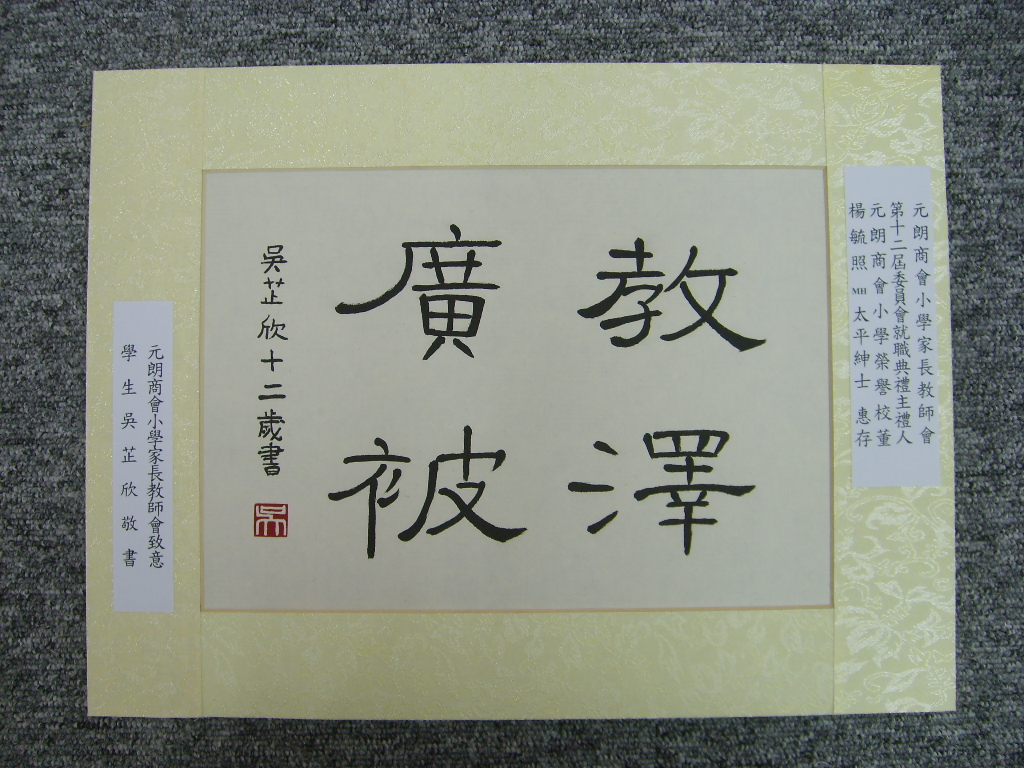 元朗商會小學家長教師會
第十二屆委員會就職典禮主禮人
元朗商會小學榮譽校董
楊毓照 MH 太平紳士 惠存
教澤
廣被
吳芷欣十二歲書
吳
元朗商會小學家長教師會致意
學生吳芷欣敬書